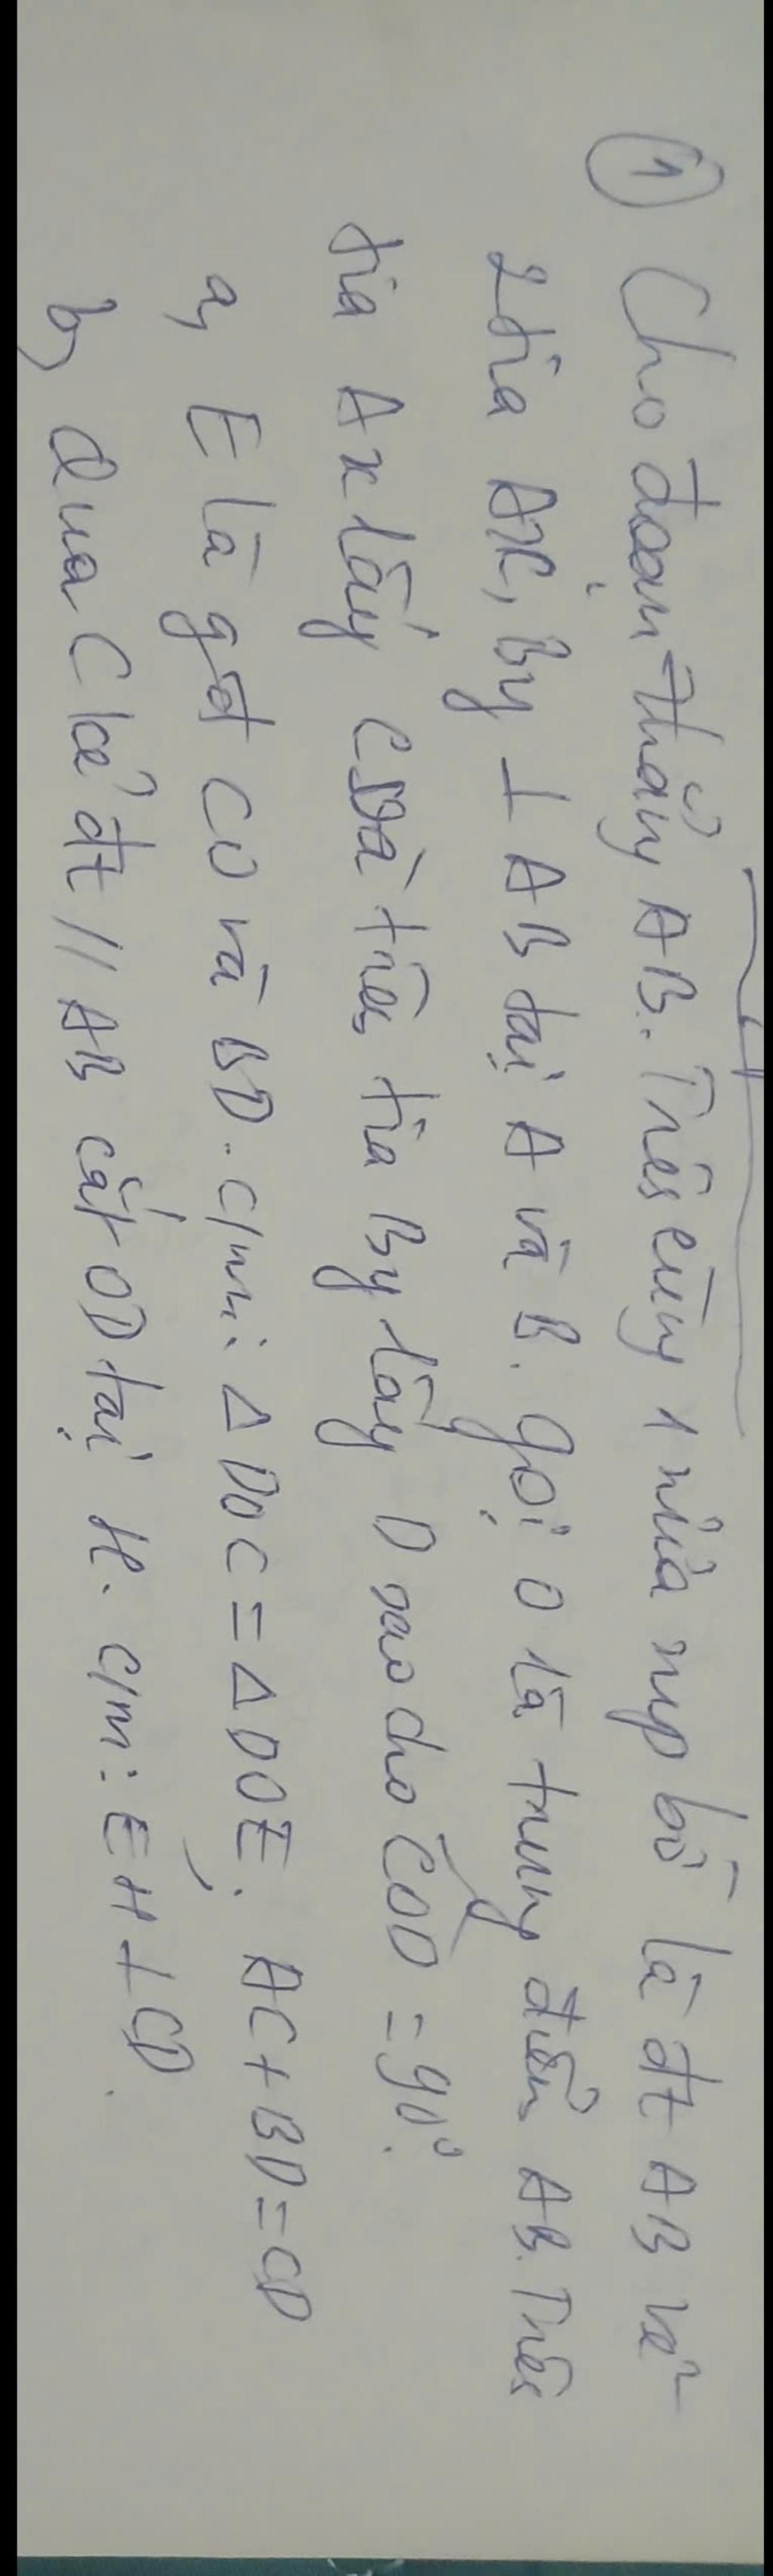 ① Cho đoạn thẳng AB. Trên cùng 1 nửa mp bờ là đt AB vẽ
2 tia Ax, By ⊥ AB tại A và B. Gọi O là trung điểm AB. Trên
tia Ax lấy C và trên tia By lấy D sao cho COD = 90°.
a, E là gđ CO và BD. c/m: △DOC = △DOE; AC + BD = CD
b, Qua C kẻ đt // AB cắt OD tại H. c/m: EH ⊥ CD.